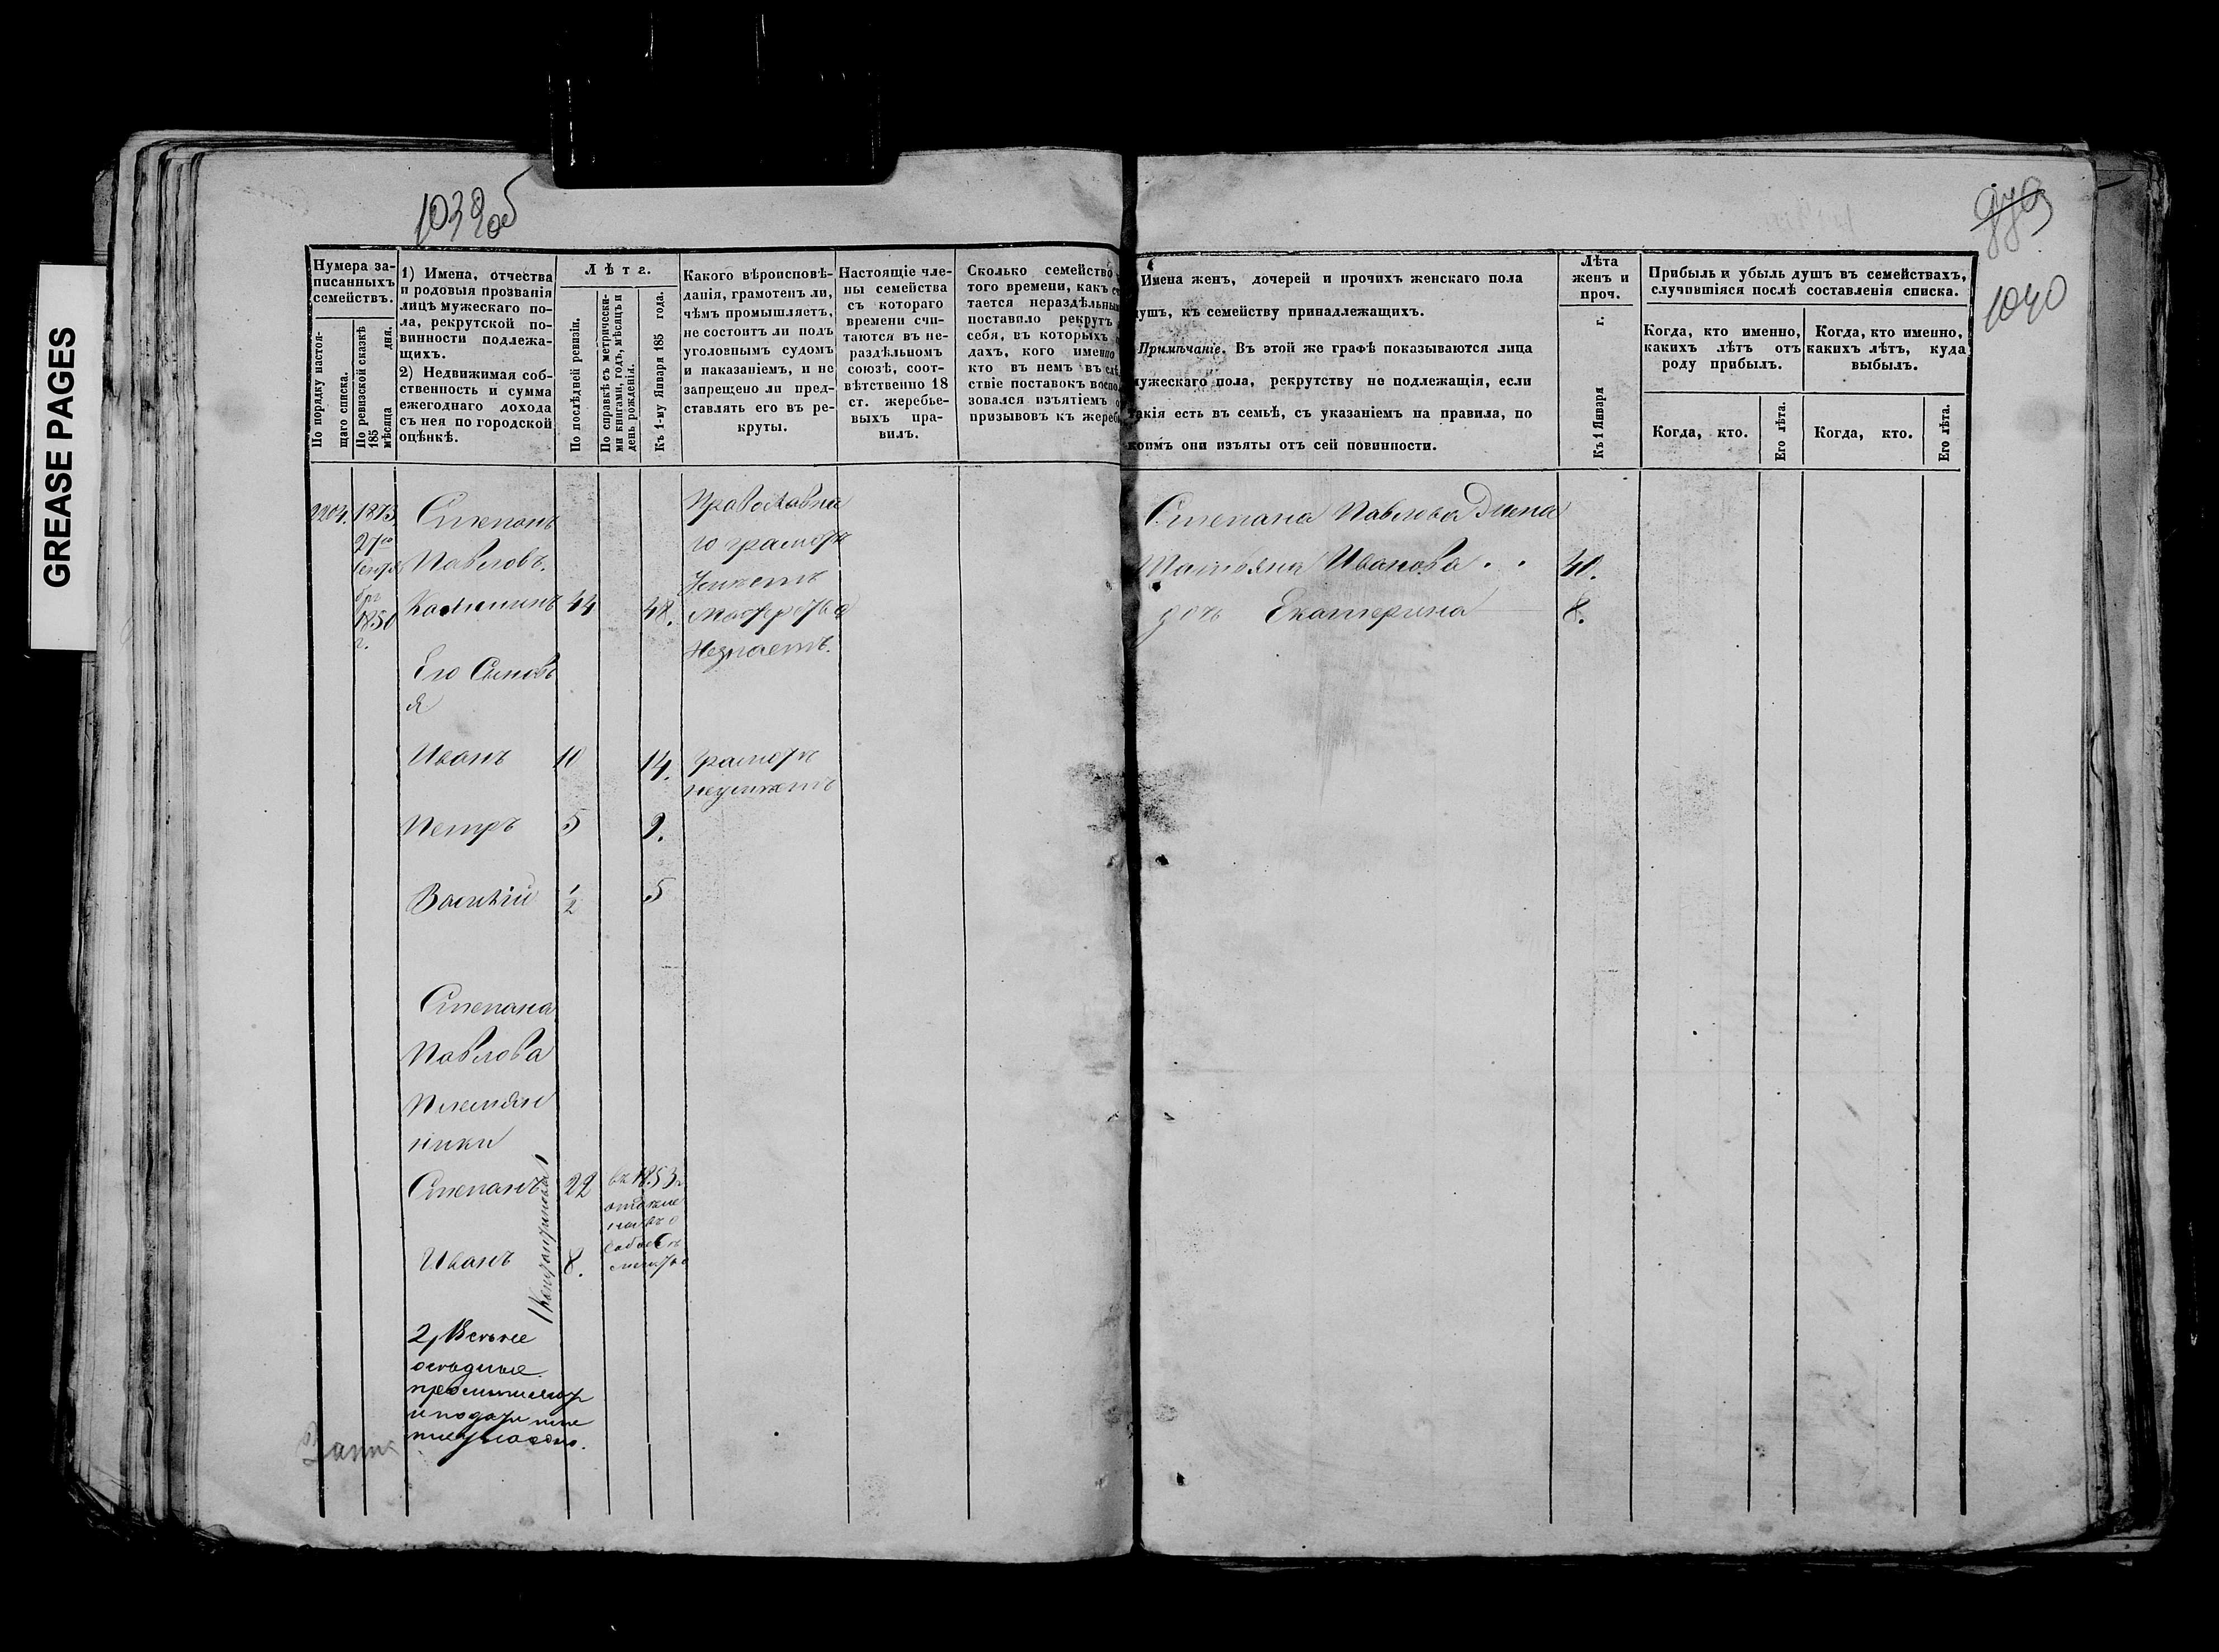 GREASE PAGES
1039об
979
1040
Нумера за-
писанныхъ
семействъ.
По порядку настоя-
щаго списка.
По ревизской сказкѣ
185
мѣсяца дня.
1) Имена, отчества
и родовыя прозванія
лицъ мужескаго по-
ла, рекрутской по-
винности подлежа-
щихъ.
2) Недвижимая соб-
ственность и сумма
ежегоднаго дохода
съ нея по городской
оцѣнкѣ.
Лѣта.
По послѣдней ревизіи.
По справкѣ съ метрически-
ми книгами, годъ, мѣсяцъ и
день рожденія.
Къ 1-му Января 185 года.
Какого вѣроисповѣ-
данія, грамотенъ ли,
чѣмъ промышляетъ,
не состоитъ ли подъ
уголовнымъ судомъ
и наказаніемъ, и не
запрещено ли пред-
ставлять его въ ре-
круты.
Настоящіе чле-
ны семейства
съ котораго
времени счи-
таются въ не-
раздѣльномъ
союзѣ, соот-
вѣтственно 18
ст. жеребье-
выхъ пра-
вилъ.
Сколько семейство
того времени, какъ
тается нераздѣльным
поставило рекрутъ
себя, въ которыхъ
дахъ, кого именно
кто въ немъ въ слѣ
ствіе поставокъ воспо
зовался изъятіемъ
призывовъ къ жереб
Имена женъ, дочерей и прочихъ женскаго пола
душъ, къ семейству принадлежащихъ.
Примѣчаніе. Въ этой же графѣ показываются лица
мужескаго пола, рекрутству не подлежащія, если
такія есть въ семьѣ, съ указаніемъ на правила, по
коимъ они изъяты отъ сей повинности.
Лѣта
женъ и
проч.
Къ 1 Января г.
Прибыль и убыль душъ въ семействахъ,
случившіяся послѣ составленія списка.
Когда, кто именно,
какихъ лѣтъ отъ
роду прибылъ.
Когда, кто именно,
какихъ лѣтъ, куда
выбылъ.
Когда, кто.
Его лѣта.
Когда, кто.
Его лѣта.
2204. 1873.
27го
Сентя
бря
1850
г.
Степанъ
Павловъ.
Калининъ 44 48.
Православна
го грамотѣ
Умѣетъ
Мастерства
Незнаетъ.
Его Сыновь
я
Иванъ 10 14. грамотѣ
неумѣетъ
Петръ 5 9.
Василій 1/2 5
Степана
Павлова
Племян
ники
Степанъ 22
въ 1853 г.
Иванъ 8.
/Константиновы/
2,
и подати
Степана Павлова Жена
Татьяна Иванова . . 40.
дочь Екатерина 8.